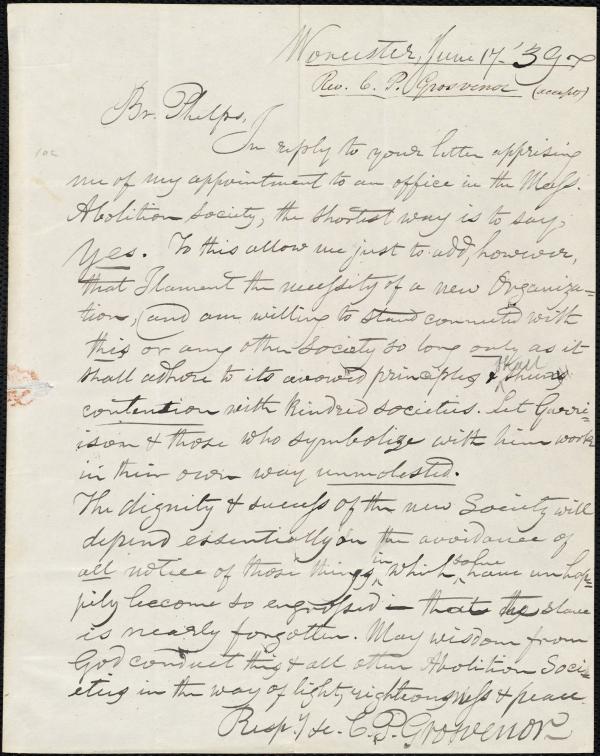 Worcester, June 17. '39
Rev. C. P. Grosvenor (accepts)
Br. Phelps,
In reply to your letter apprising
me of my appointment to an office in the Mass.
Abolition Society, the shortest way is to say,
Yes. To this allow me just to add, however,
that I lament the necessity of a new Organiza-
tion, and am willing to stand connected with
this or any other Society so long only as it
shall adhere to its avowed principles & shall shun
contention with kindred societies. Let Garri-
ison & those who symbolize with him work
in their own way unmolested.
The dignity & success of the new Society will
depend essentially on the avoidance of
all notice of those things in which some have unhap-
pily become so engrossed that the slave
is nearly forgotten. May wisdom from
God conduct this & all other Abolition Soci-
eties in the way of light, righteousness & peace.
Resp.y &c. C. P. Grosvenor